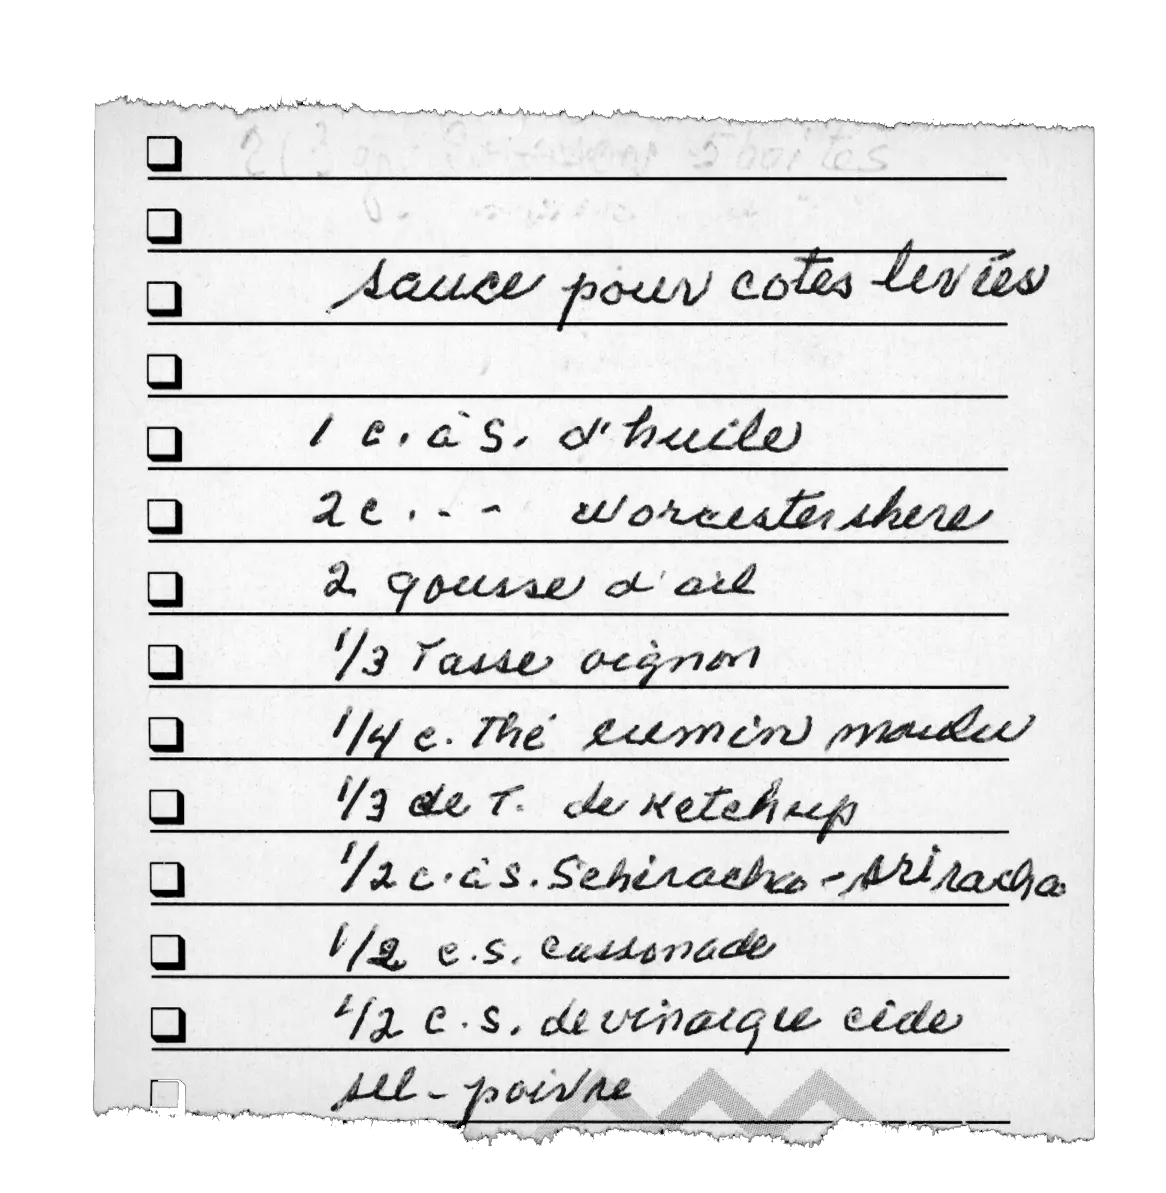 sauce pour cotes levées
1 c. à S. d'huile
2 c . - - Worcestershere
2 gousse d'ail
1/3 Tasse oignon
1/4 c. Thé cumin moulu
1/3 de T. de Ketchup
1/2 c. à s. Schiracha - sriracha
1/2 c.s. cassonade
1/2 c.s. de vinaigre cide
sel - poivre